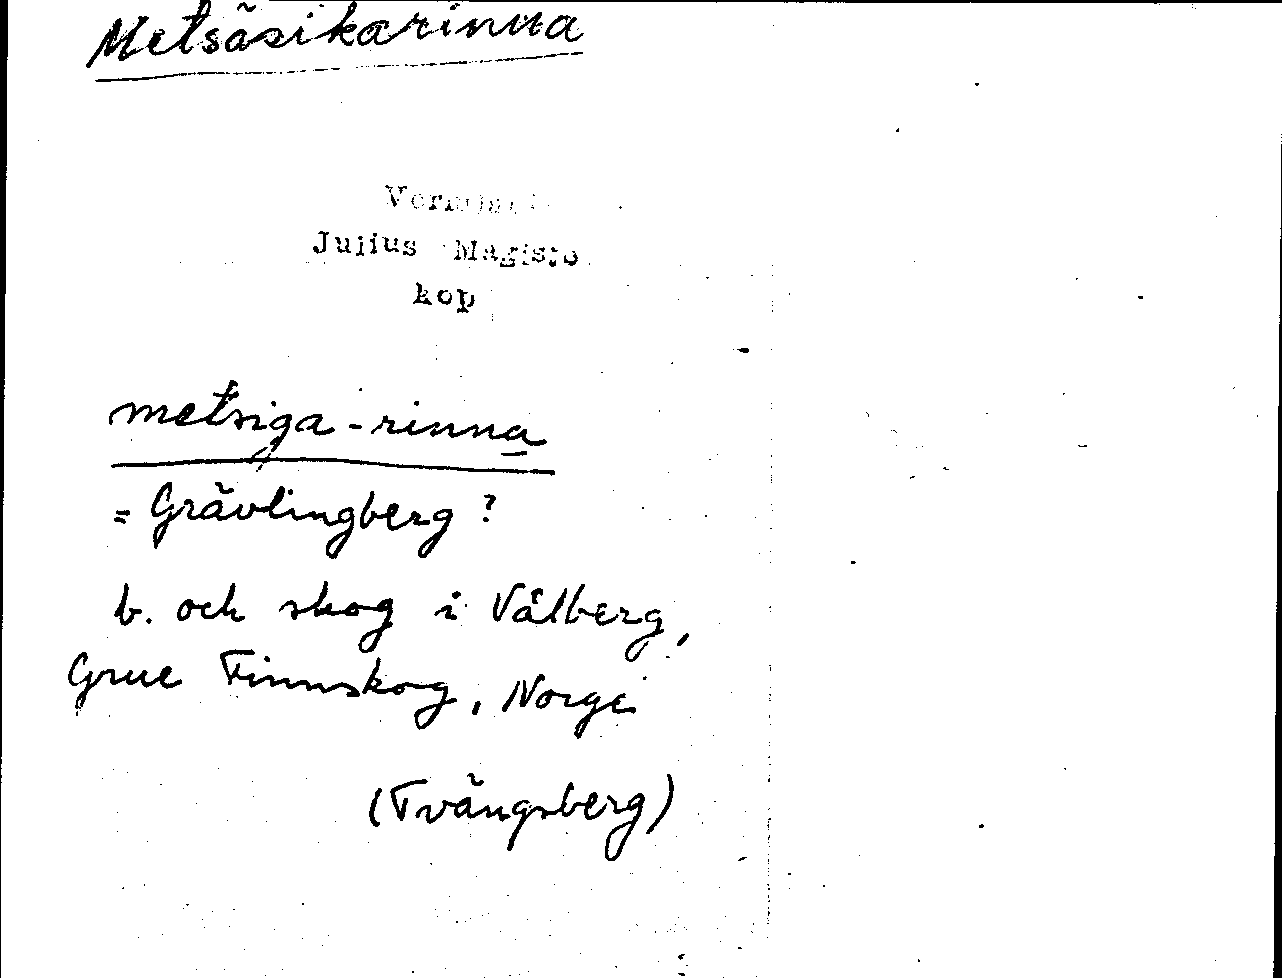 Metsäsikarinna
Julius Mägiste
kop
metsiga-rinna
= Grävlingberg?
b. och skog i Vålberg,
Grue Finnskog, Norge
(Tvängsberg)